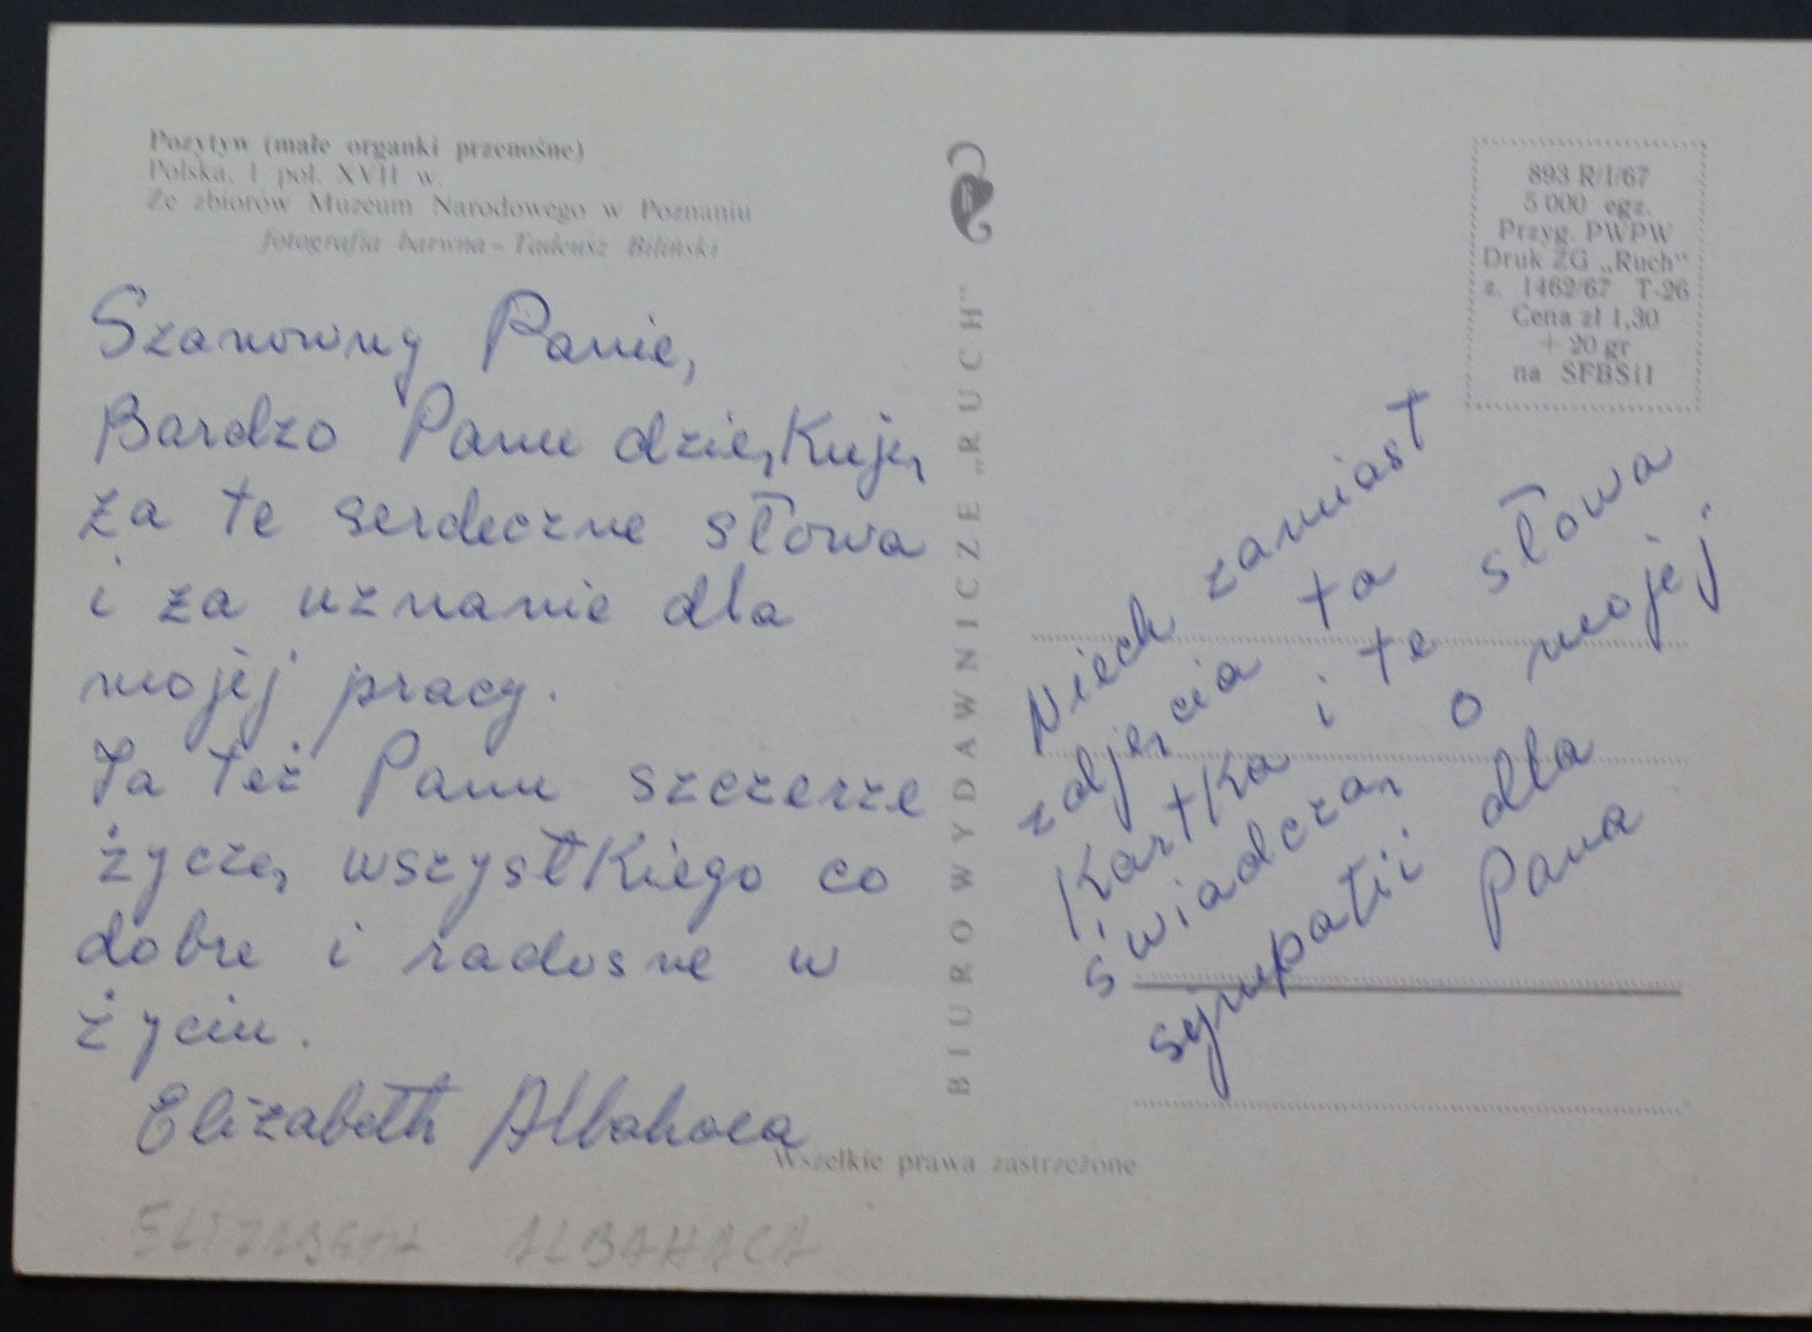 Pozytyw (małe organki przenośne)
Polska, I poł. XVII w.
Ze zbiorów Muzeum Narodowego w Poznaniu
fotografia barwna – Tadeusz Biliński
Szanowny Panie,
Bardzo Panu dziękuję
za te serdeczne słowa
i za uznanie dla
mojej pracy.
Ja też Panu szczerze
życzę wszystkiego co
dobre i radosne w
życiu.
Elizabeth Albahaca
ELIZABETH ALBAHACA
BIURO WYDAWNICZE „RUCH"
893 R/I/67
5 000 egz.
Przyg. PWPW
Druk ZG „Ruch"
z. 1462/67 T-26
Cena zł 1,30
+ 20 gr
na SFBSiI
Niech zamiast
zdjęcia ta
kartka i te słowa
świadczą o mojej
sympatii dla
Pana
Wszelkie prawa zastrzeżone